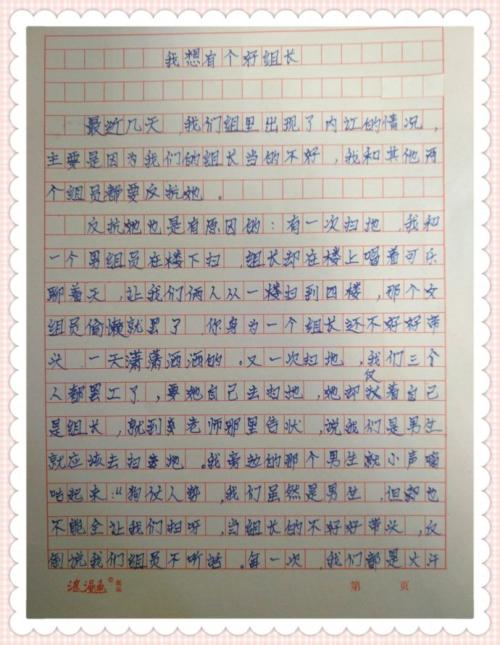 我想有个好组长
最近几天，我们组里出现了内讧的情况，
主要是因为我们的组长当的不好，我和其他两
个组员都要反抗她。
反抗她也是有原因的：有一次扫地，我和
一个男组员在楼下扫，组长却在楼上喝着可乐
聊着天，让我们俩人从一楼扫到四楼，那个女
组员偷懒就罢了，你身为一个组长还不好好带
头，一天潇潇洒洒的。又一次扫地，我们三个
人都罢工了，要她自己去扫地，她却仗着自己
是组长，就到 老师那里告状，说我们是男生
就应该去扫 地。我旁边的那个男生就小声嘀
咕起来：“狗仗人势，我们虽然是男生，但 也
不能全让我们扫呀，当组长的不好好带头，反
倒说我们组员不听话。每一次，我们都是大汗
浪漫屋
第 页